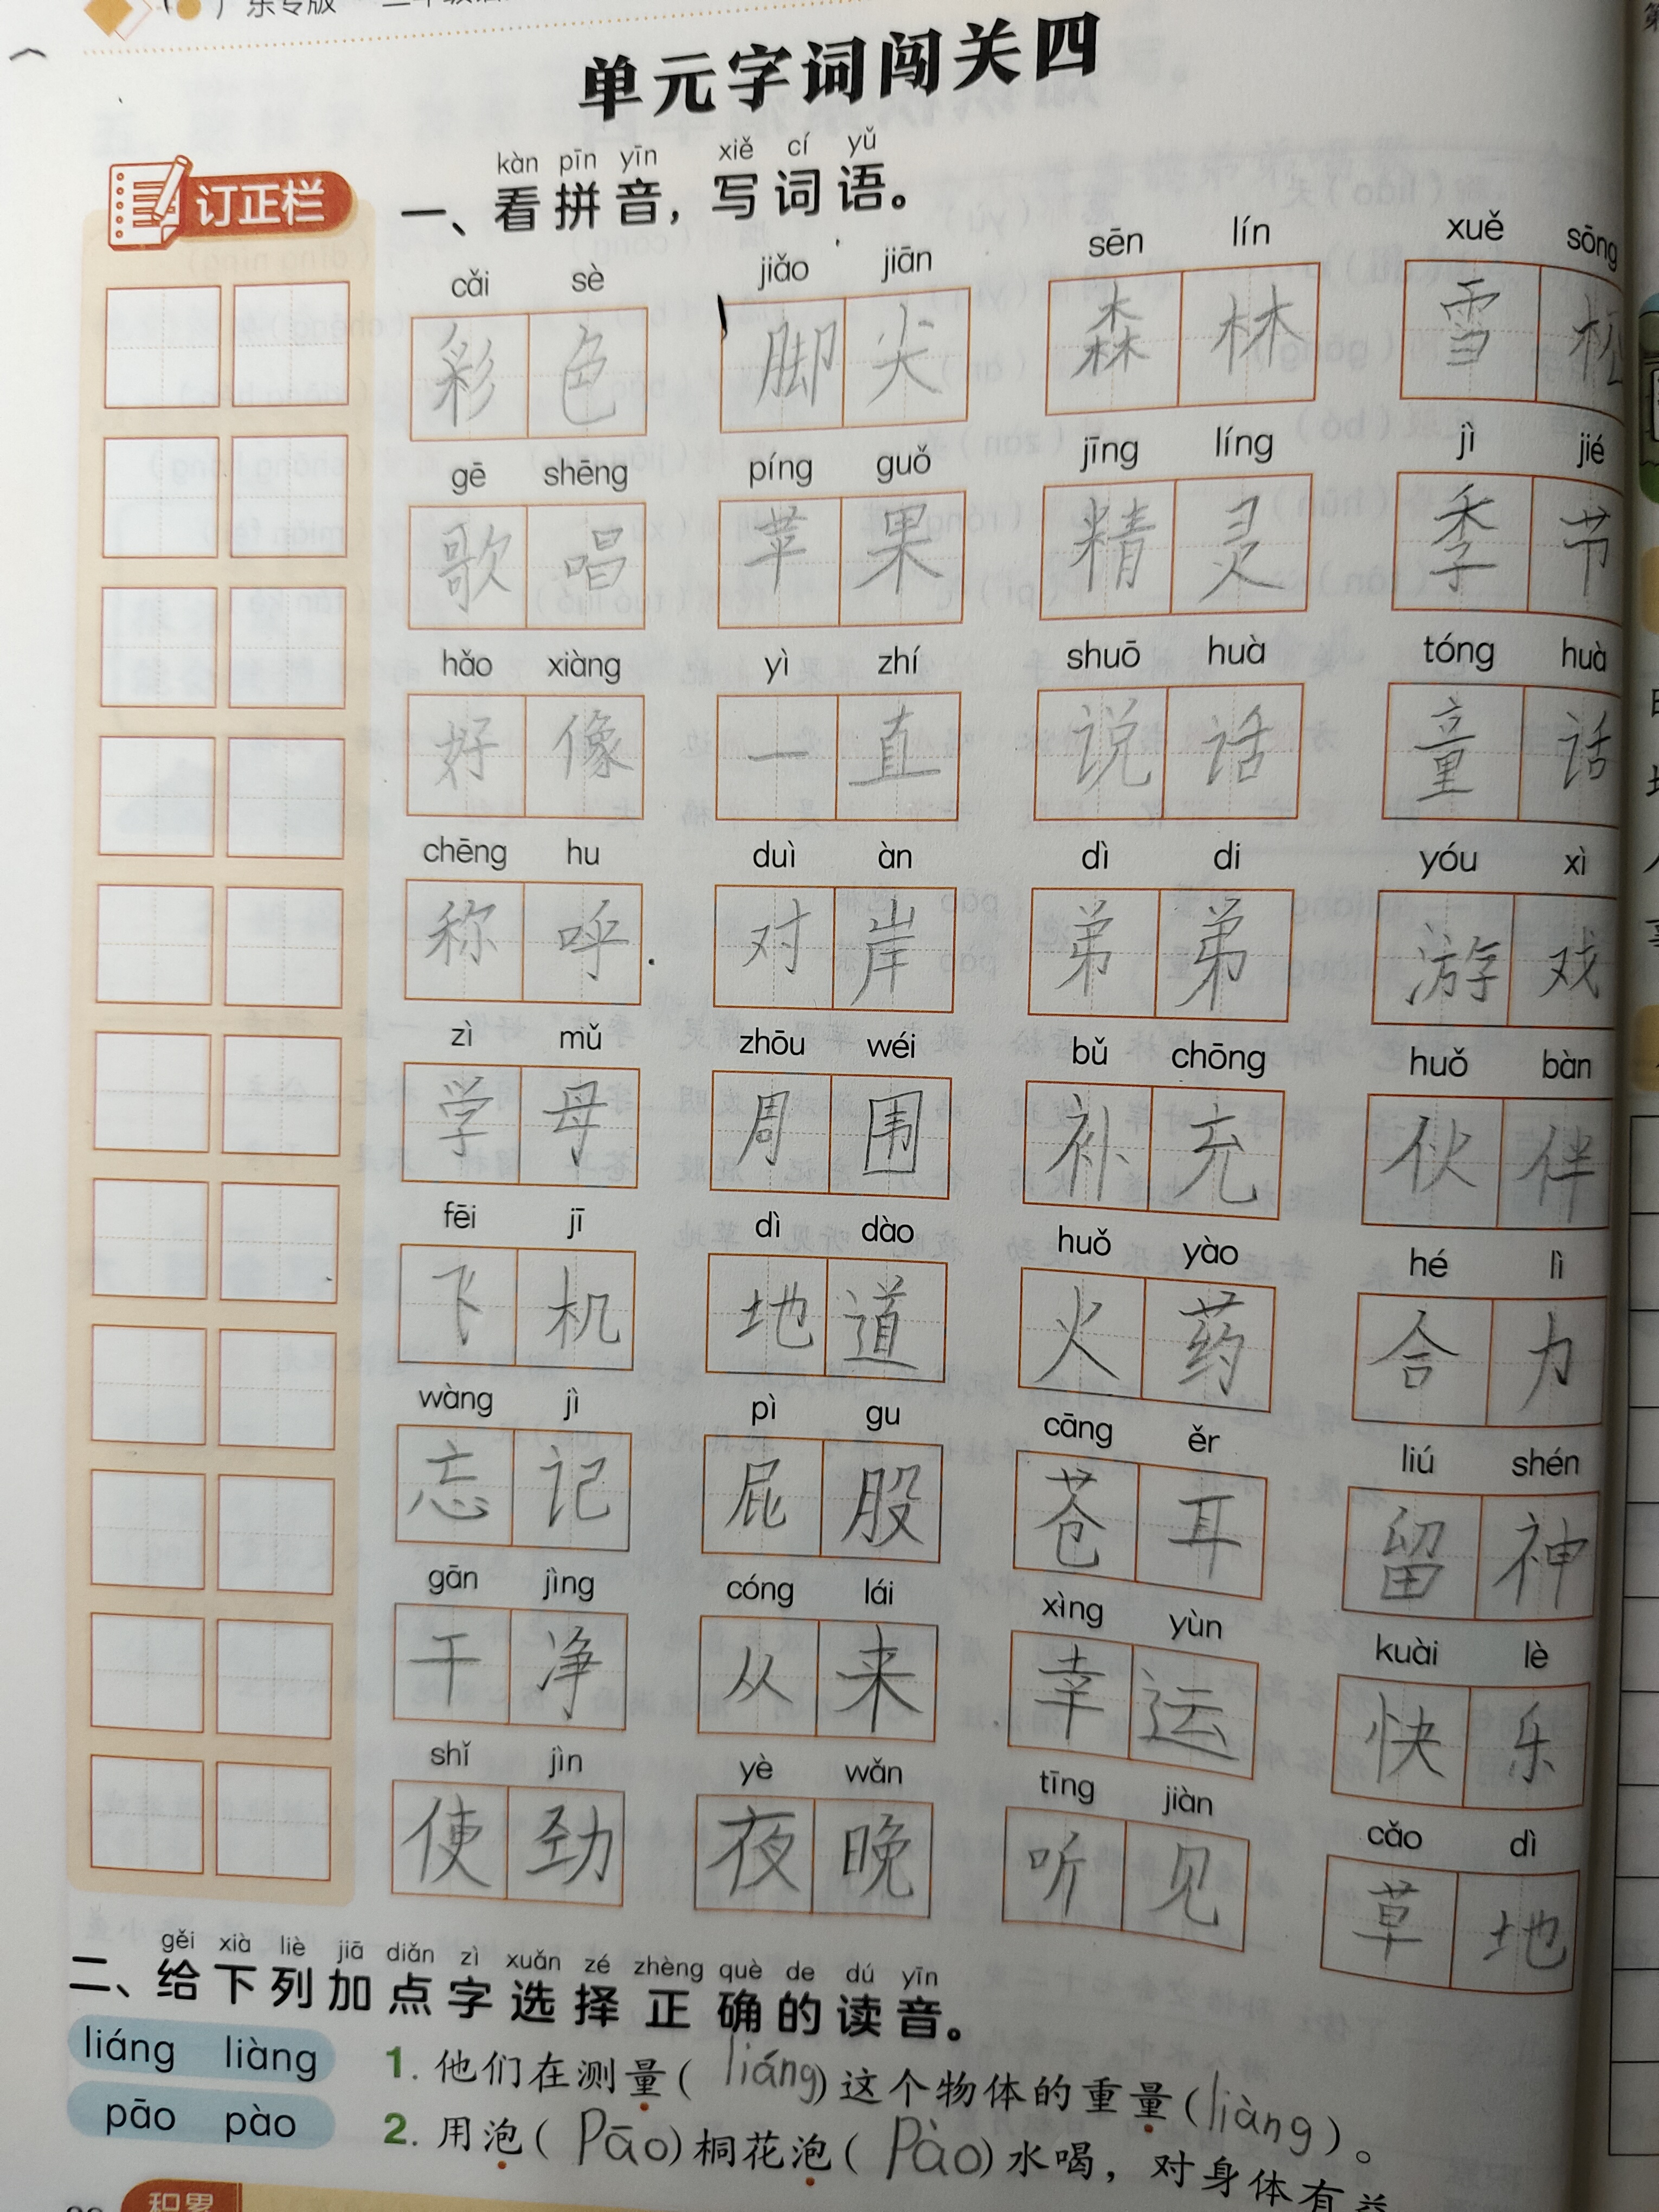 广东专版
单元字词闯关四
订正栏
kàn pīn yīn xiě cí yǔ
一、看拼音，写词语。
cǎi sè jiǎo jiān sēn lín xuě sōng
彩色 脚尖 森林 雪松
gē shēng píng guǒ jīng líng jì jié
歌唱 苹果 精灵 季节
hǎo xiàng yì zhí shuō huà tóng huà
好像 一直 说话 童话
chēng hu duì àn dì di yóu xì
称呼 对岸 弟弟 游戏
zì mǔ zhōu wéi bǔ chōng huǒ bàn
学母 周围 补充 伙伴
fēi jī dì dào huǒ yào hé lì
飞机 地道 火药 合力
wàng jì pì gu cāng ěr liú shén
忘记 屁股 苍耳 留神
gān jìng cóng lái xìng yùn kuài lè
干净 从来 幸运 快乐
shǐ jìn yè wǎn tīng jiàn cǎo dì
使劲 夜晚 听见 草地
gěi xià liè jiā diǎn zì xuǎn zé zhèng què de dú yīn
二、给下列加点字选择正确的读音。
liáng liàng
1. 他们在测量( liáng )这个物体的重量( liàng )。
pāo pào
2. 用泡( Pāo )桐花泡( Pào )水喝，对身体有益
积累